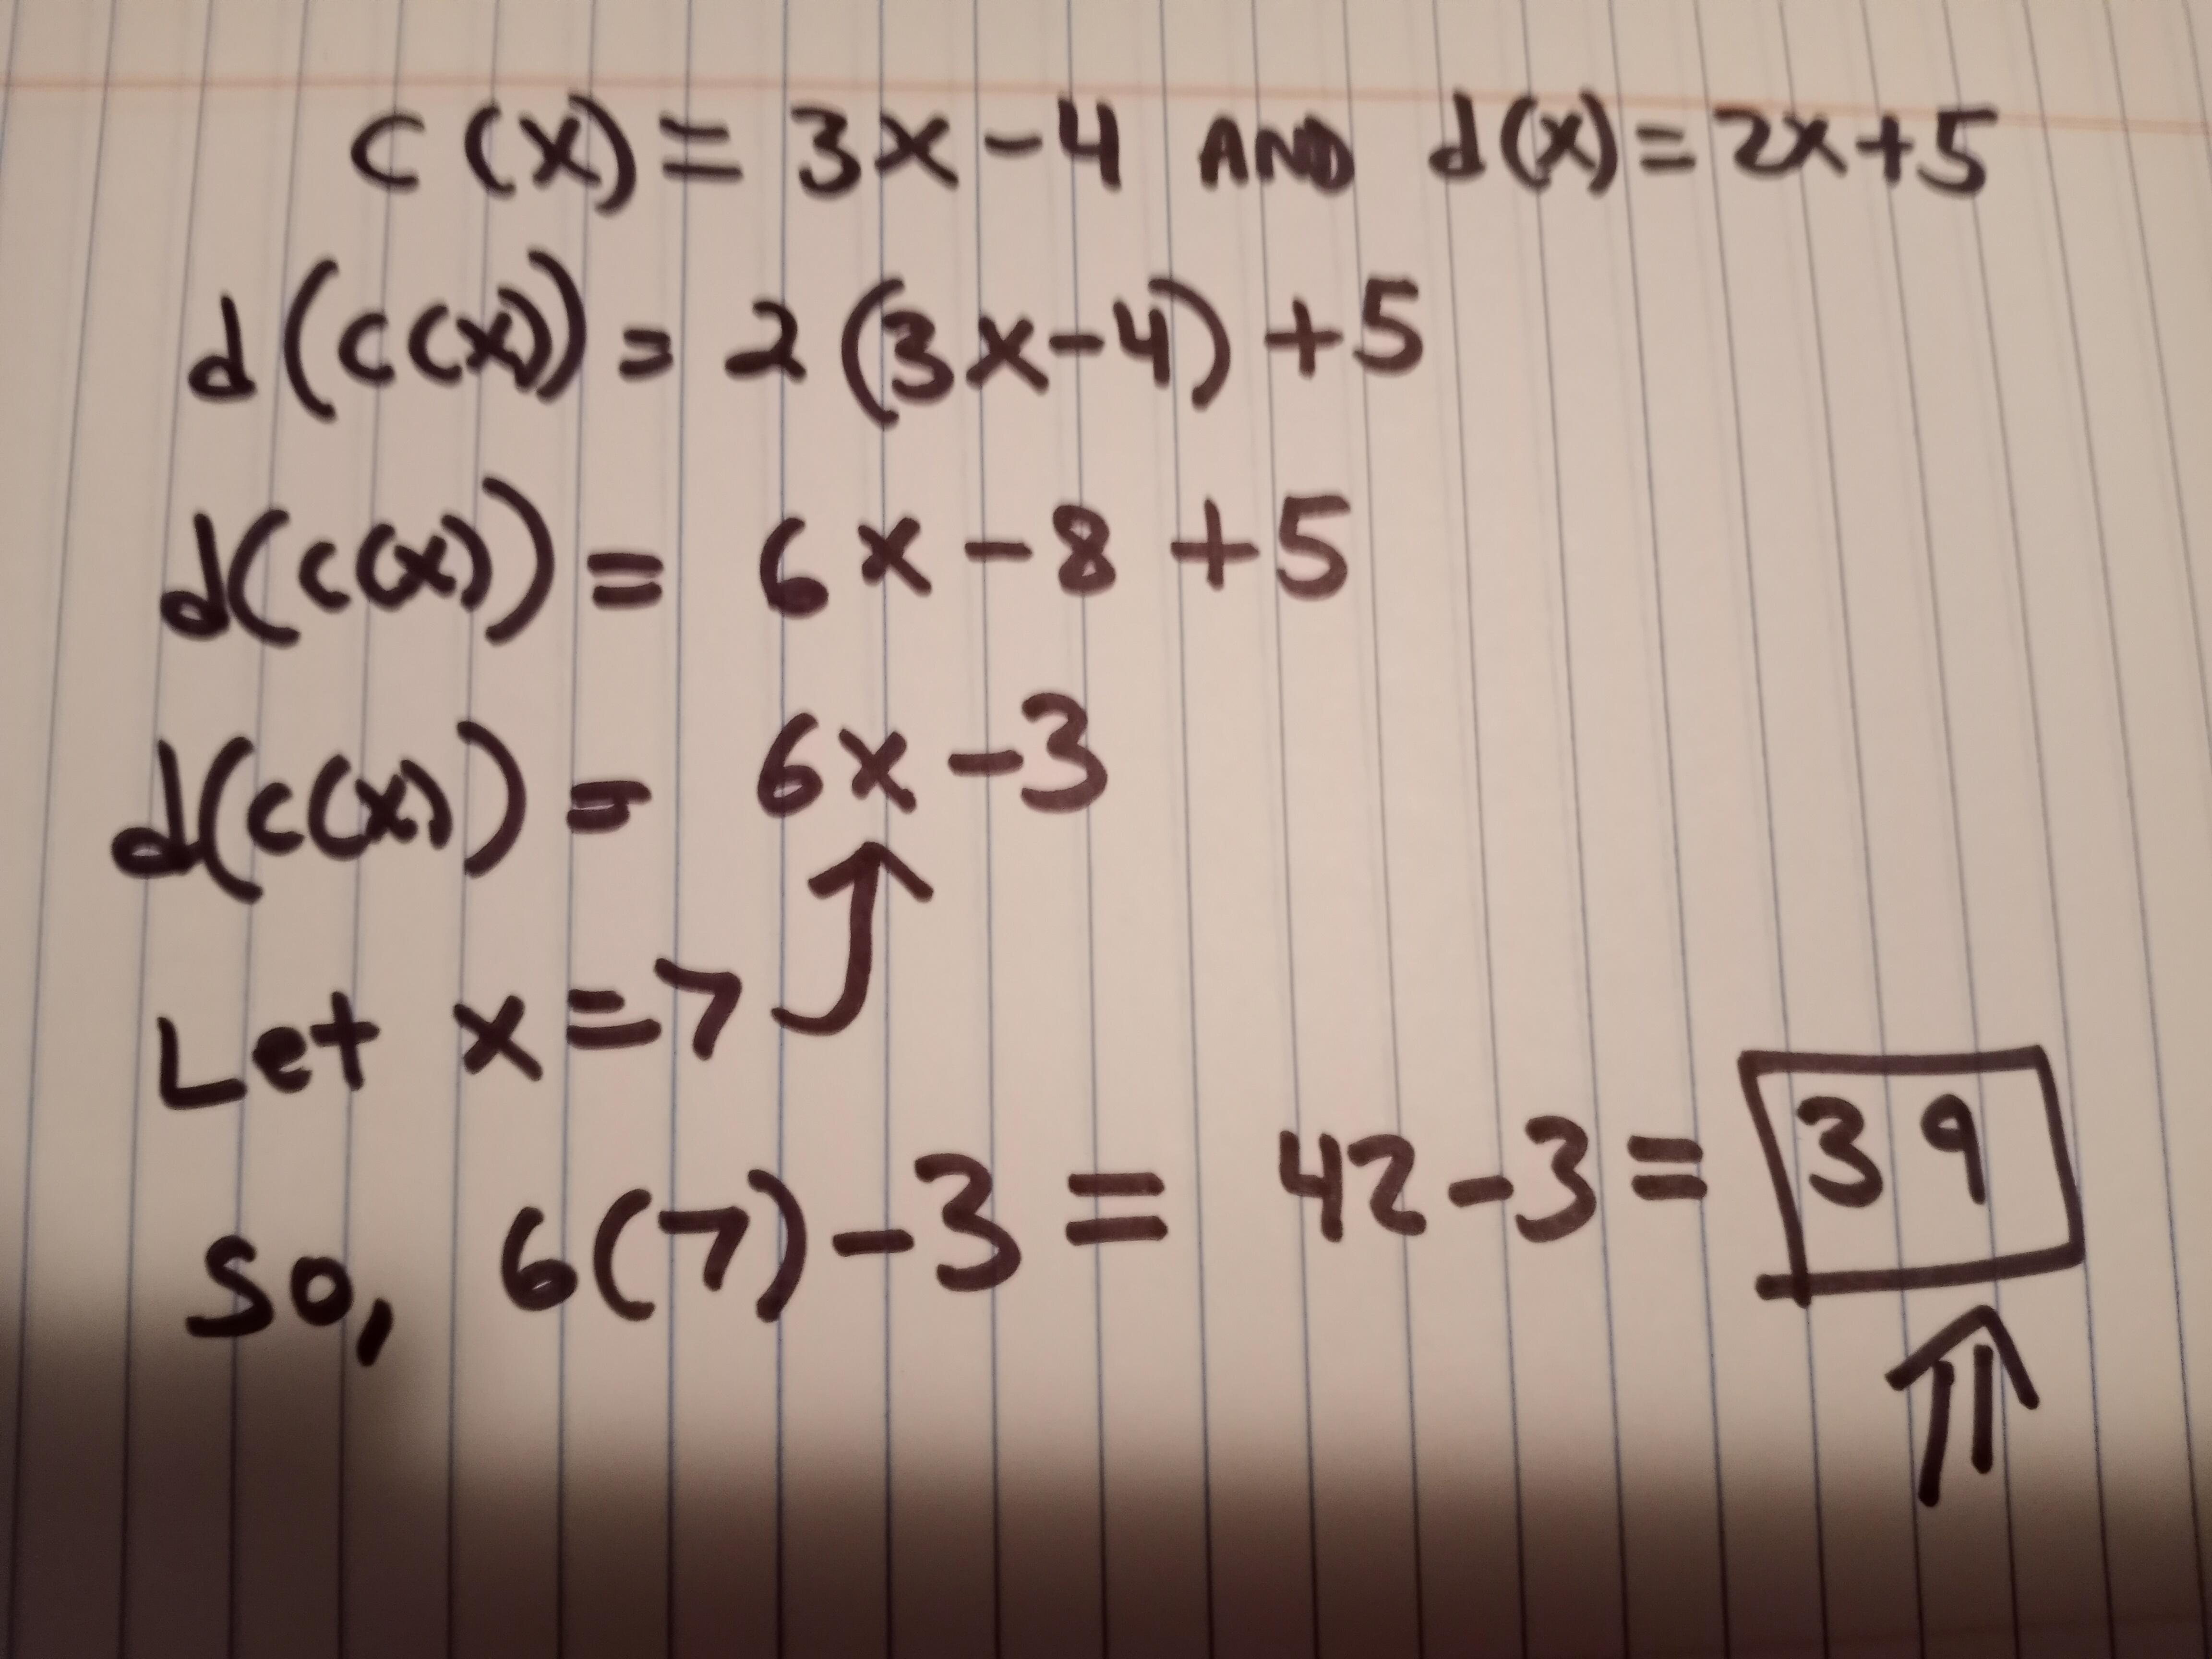 c(x) = 3x - 4 AND d(x) = 2x + 5
d(c(x)) = 2(3x - 4) + 5
d(c(x)) = 6x - 8 + 5
d(c(x)) = 6x - 3
Let x = 7
So, 6(7) - 3 = 42 - 3 = 39